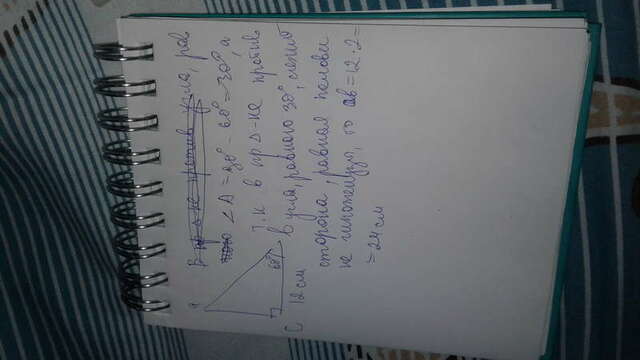 В пр Δ-ке против угла, рав
∠A = 90° - 60° = 30°, а
т.к в пр Δ-ке против
угла, равного 30°, лежит
сторона, равная полови
не гипотенузы, то AB = 12 · 2 =
= 24 см
A
60°
C
B
12 см